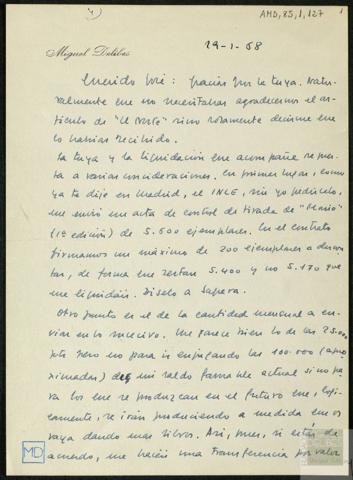 4)
AMD, 85, 1, 127
1
Miguel Delibes
19-1-68
Querido José: gracias por la tuya. Natu-
ralmente que no necesitabas agradecernos el ar-
tículo de "El Norte" sino solamente decirme que
lo habías recibido.
La tuya y la liquidación que acompaña
a varias consideraciones. En primer lugar, como
ya te dije en Madrid, el INLE, sin yo pedírselo,
me envió un acta de control de tirada de "Mario"
(1ª edición) de 5.600 ejemplares. En el contrato
firmamos un máximo de 200 ejemplares a descon-
tar, de forma que restan 5.400 y no 5.170 que
me liquidáis. Díselo a Sapena.
Otro punto es el de la cantidad mensual a en-
viar en lo sucesivo. Me parece bien lo de las 25.000
pts pero no para ir enjugando las 100.000 (apro-
ximadas) de mi saldo favorable actual sino pa-
ra los que se produzcan en el futuro que, lógi-
camente, se irán produciendo a medida que os
vaya dando más libros. Así, pues, si estás de
acuerdo, me hacéis una transferencia por valor
MD